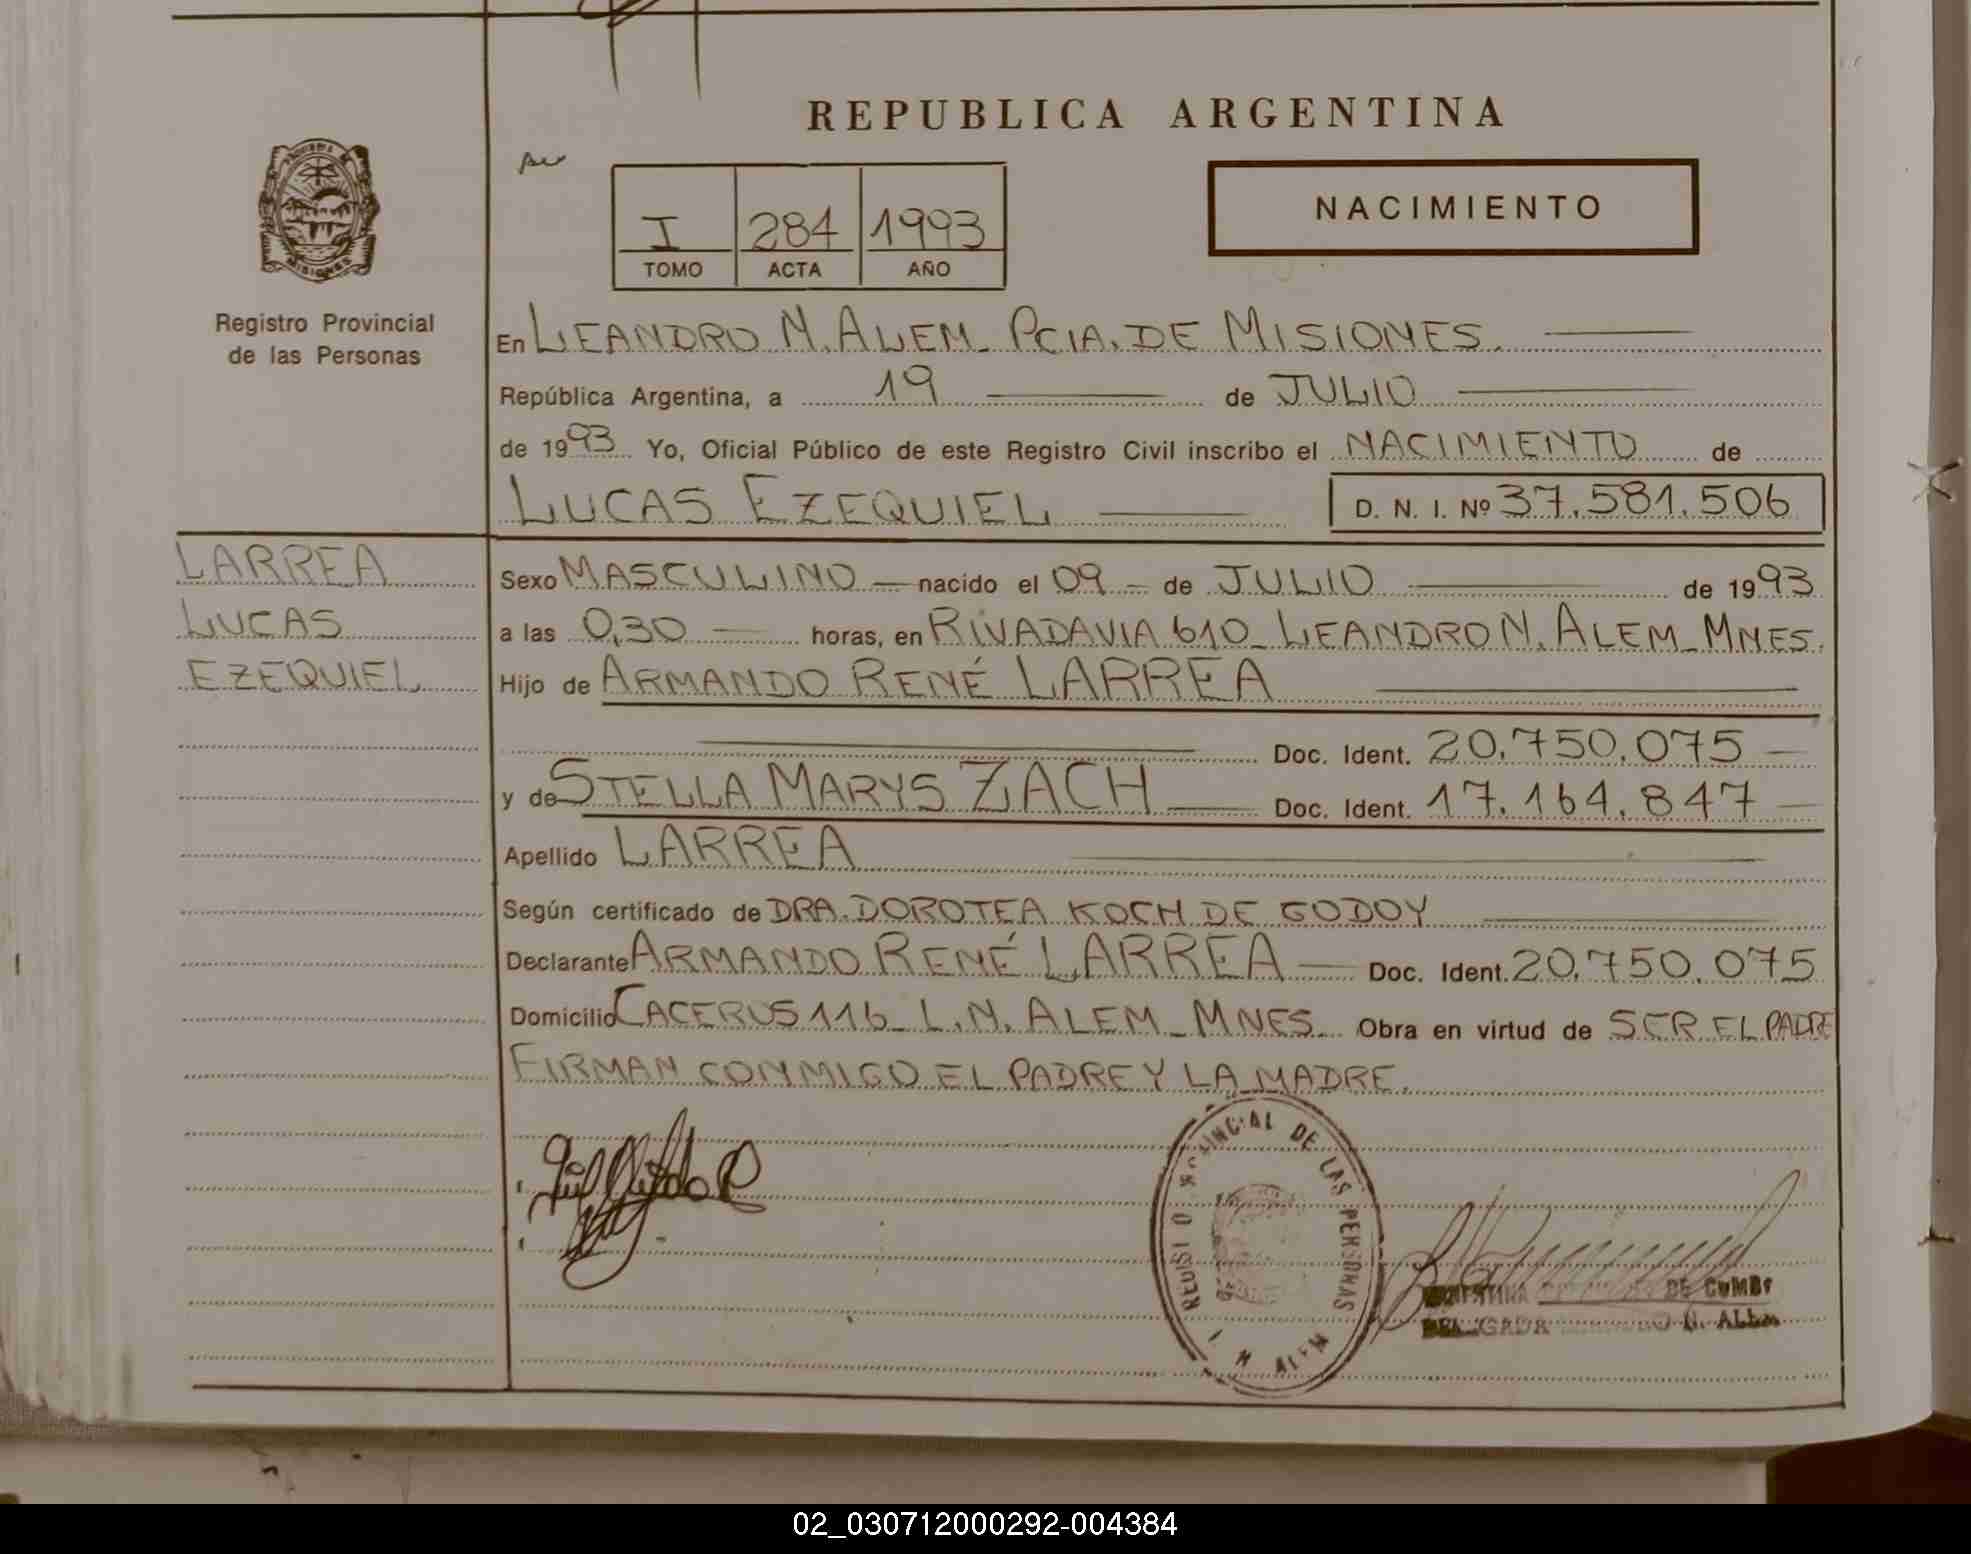 REPUBLICA ARGENTINA
NACIMIENTO
I 284 1993
TOMO ACTA AÑO
MISIONES
Registro Provincial
de las Personas
En LEANDRO N. ALEM - PCIA. DE MISIONES.
República Argentina, a 19 de JULIO
de 1993 Yo, Oficial Público de este Registro Civil inscribo el NACIMIENTO de
LUCAS EZEQUIEL D. N. I. Nº 37.581.506
LARREA
LUCAS
EZEQUIEL
Sexo MASCULINO nacido el 09 de JULIO de 1993
a las 0,30 horas, en RIVADAVIA 610 - LEANDRO N. ALEM - MNES.
Hijo de ARMANDO RENÉ LARREA
Doc. Ident. 20.750.075
y de STELLA MARYS ZACH Doc. Ident. 17.164.847
Apellido LARREA
Según certificado de DRA. DOROTEA KOCH DE GODOY
Declarante ARMANDO RENÉ LARREA Doc. Ident. 20.750.075
Domicilio CACEROS 116 - L.N. ALEM - MNES. Obra en virtud de SER EL PADRE
FIRMAN CONMIGO EL PADRE Y LA MADRE.
PROVINCIAL DE LAS PERSONAS
N ALEM
DE
N. ALEM
02_030712000292-004384